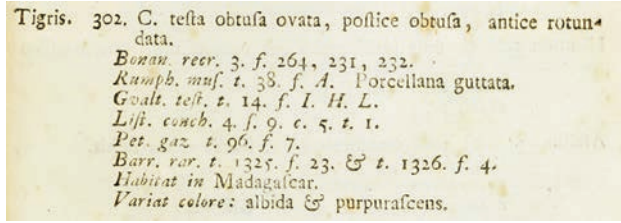 Tigris. 302. C. teſta obtuſa ovata, poſtice obtuſa, antice rotun-
data.
Bonan. recr. 3. f. 264, 231, 232.
Rumph. muſ. t. 38. f. A. Porcellana guttata.
Gvalt. teſt. t. 14. f. I. H. L.
Liſt. conch. 4. ſ. 9. c. 5. t. 1.
Pet. gaz. t. 96. f. 7.
Barr. rar. t. 1325. f. 23. & t. 1326. f. 4.
Habitat in Madagaſcar.
Variat colore: albida & purpuraſcens.